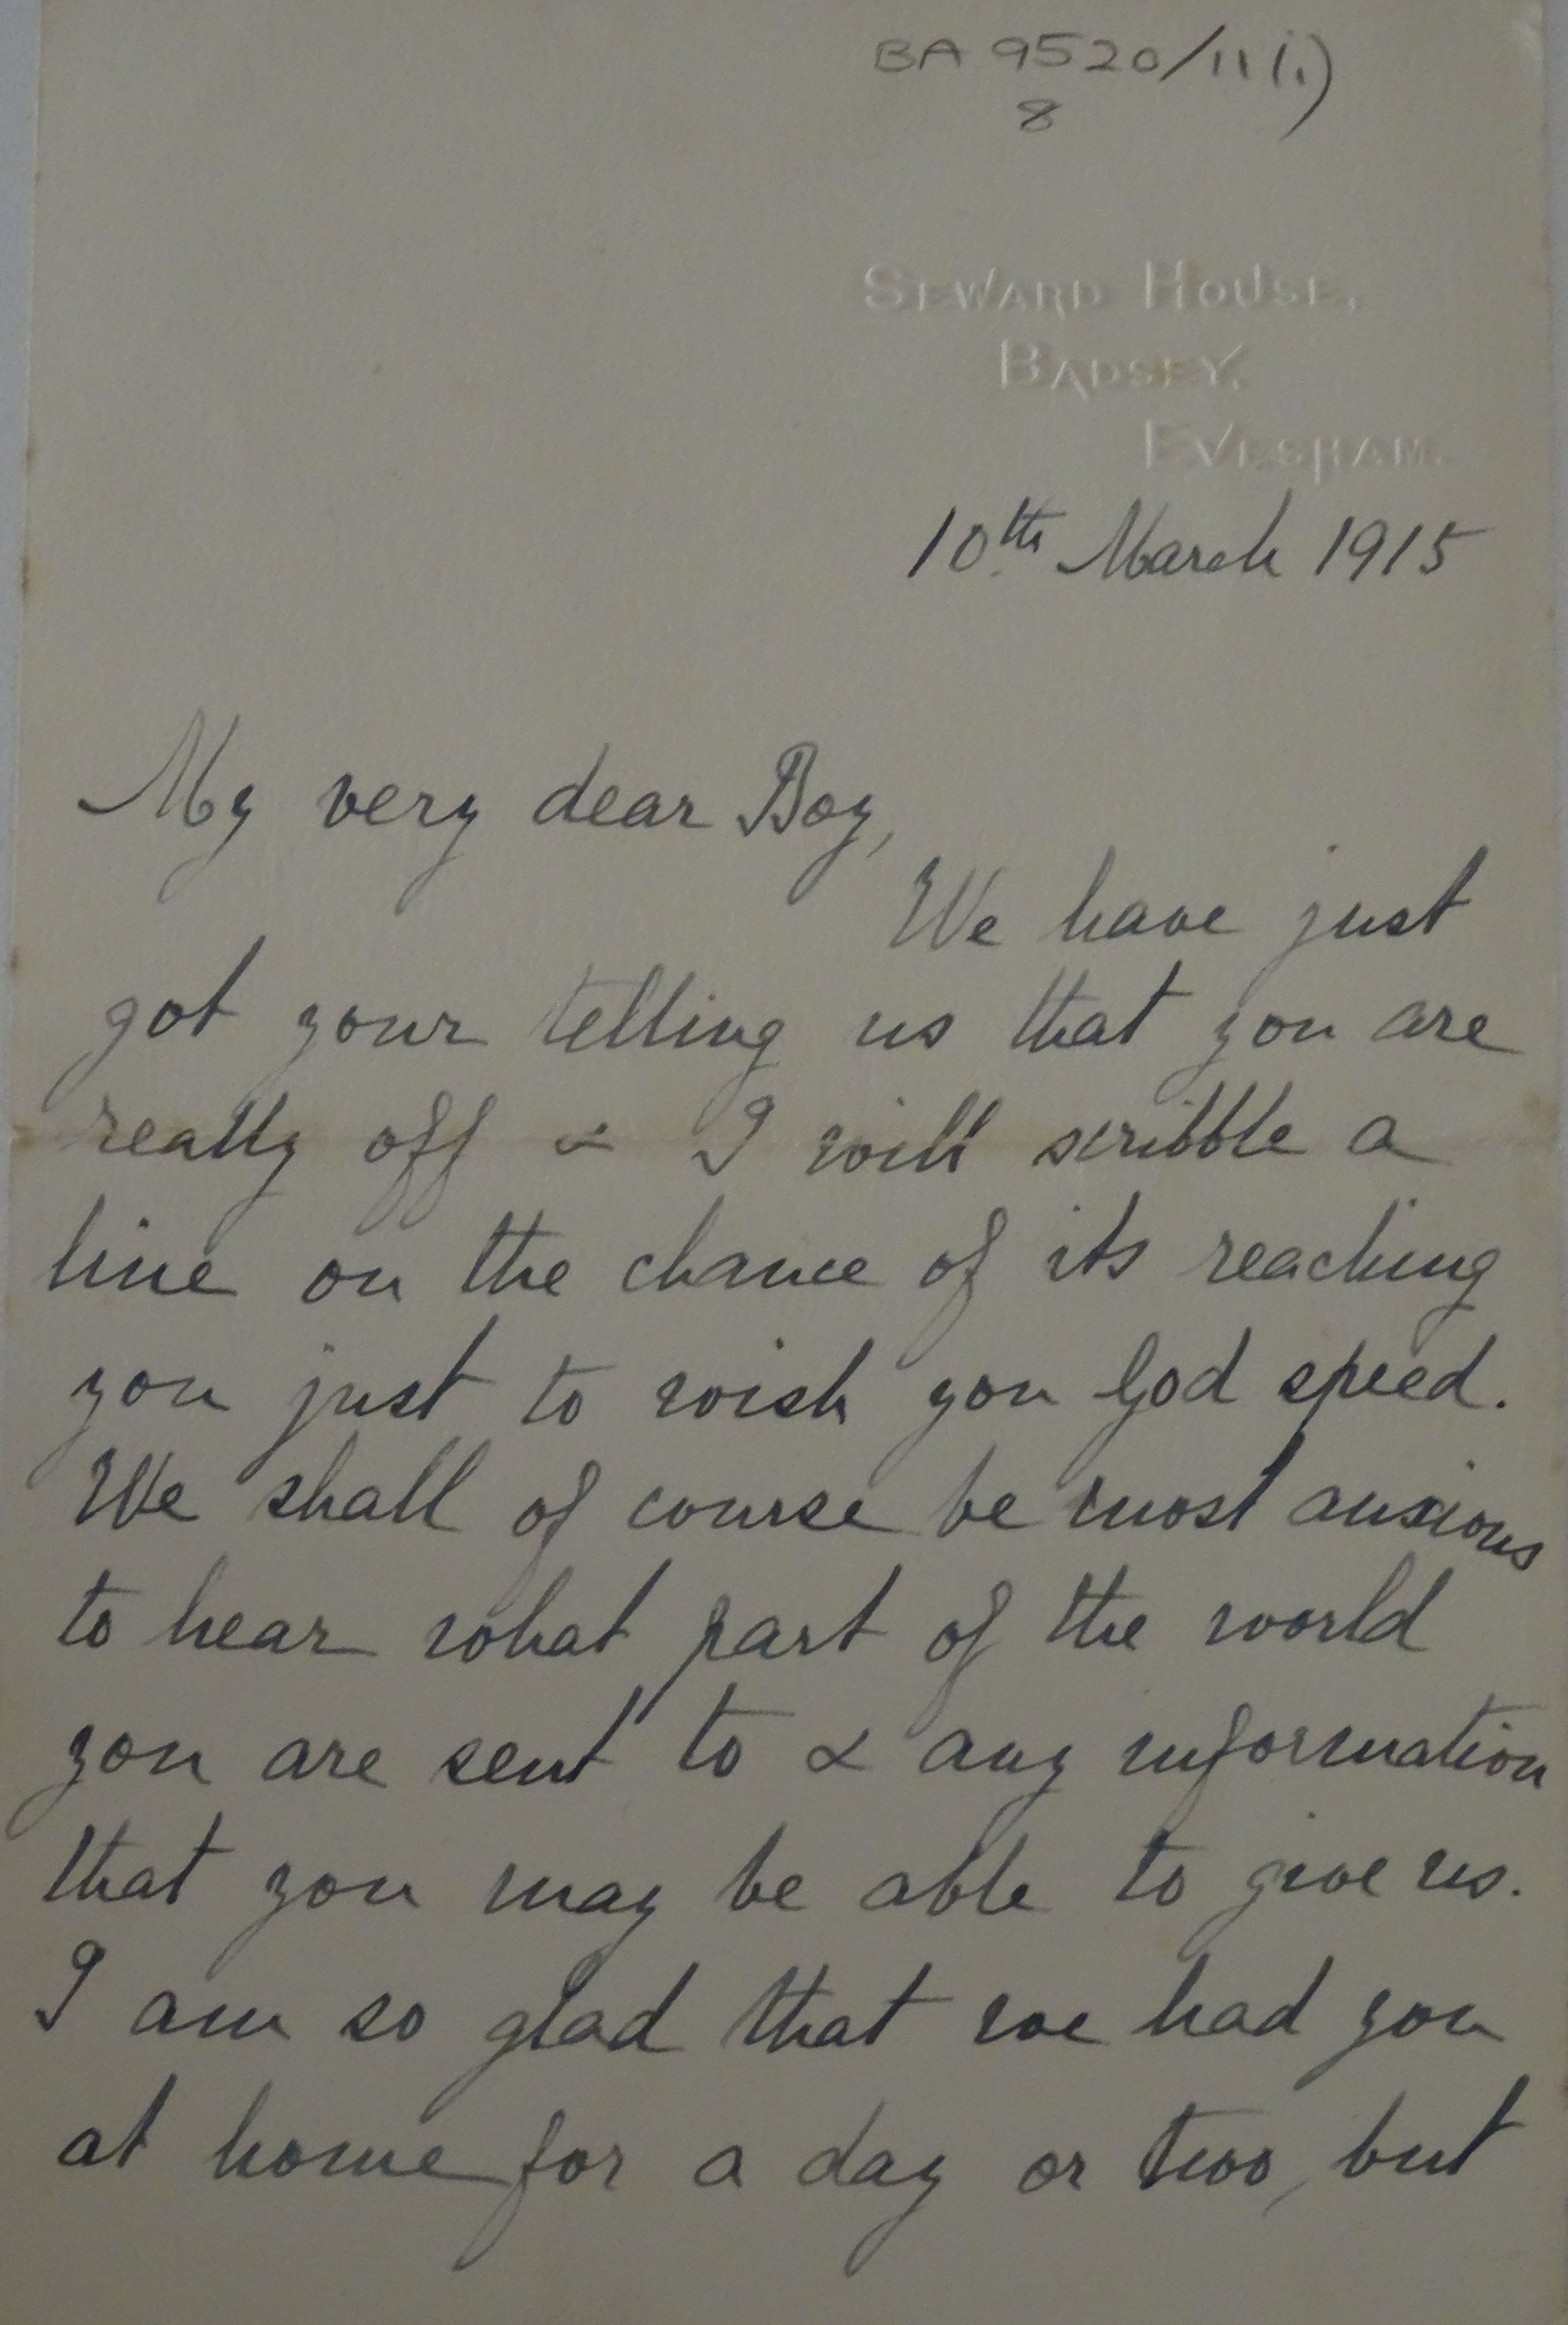 BA 9520/11(i)
8
SEWARD HOUSE,
BADSEY,
EVESHAM.
10th March 1915
My very dear Boy,
We have just
got your telling us that you are
really off & I will scribble a
line on the chance of its reaching
you just to wish you God speed.
We shall of course be most anxious
to hear what part of the world
you are sent to & any information
that you may be able to give us.
I am so glad that we had you
at home for a day or two, but